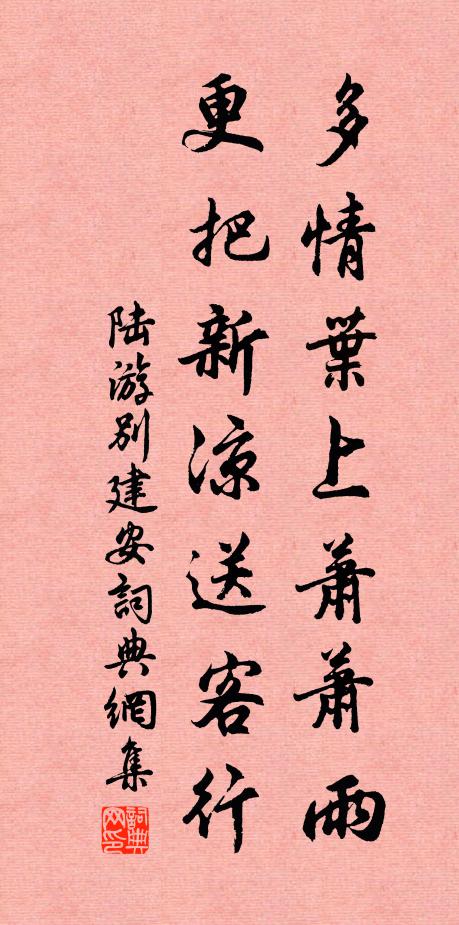 多情葉上蕭蕭雨
更把新涼送客行
陆游别建安詞典網集
詞典网印